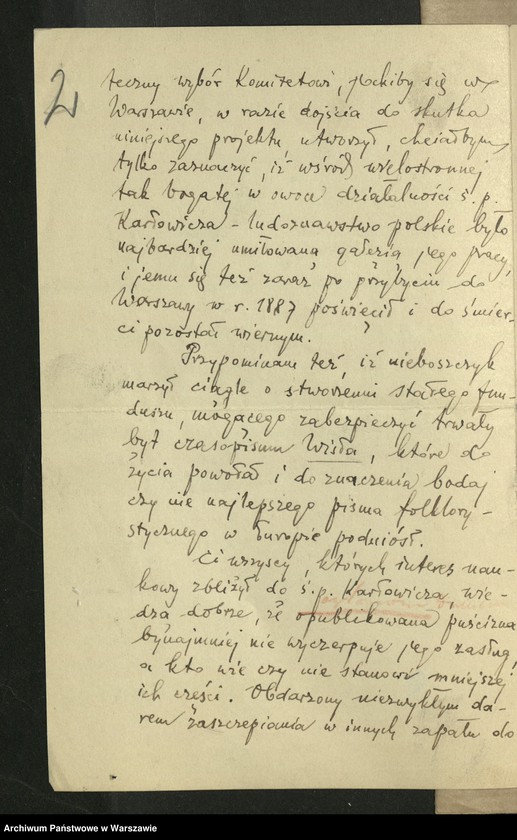 2
teczny wybór Komitetowi, jakiby się w
Warszawie, w razie dojścia do skutku
niniejszego projektu, utworzył, chciałbym
tylko zaznaczyć, iż wśród wielostronnej
tak bogatej w owoce działalności ś.p.
Karłowicza – ludoznawstwo polskie było
najbardziej umiłowaną gałęzią jego pracy,
i jemu się też zaraz po przybyciu do
Warszawy w r. 1887 poświęcił i do śmier-
ci pozostał wiernym.
Przypominam też, iż nieboszczyk
marzył ciągle o stworzeniu stałego fun-
duszu, mogącego zabezpieczyć trwały
byt czasopismu Wisła, które do
życia powołał i do znaczenia bodaj
czy nie najlepszego pisma folklory-
stycznego w Europie podniósł.
Ci wszyscy, których interes nau-
kowy zbliżył do ś.p. Karłowicza, wie-
dzą dobrze, że opublikowana puścizna
bynajmniej nie wyczerpuje jego zasług,
a kto wie czy nie stanowi mniejszej
ich części. Obdarzony niezwykłym da-
rem zaszczepiania w innych zapału do
Archiwum Państwowe w Warszawie